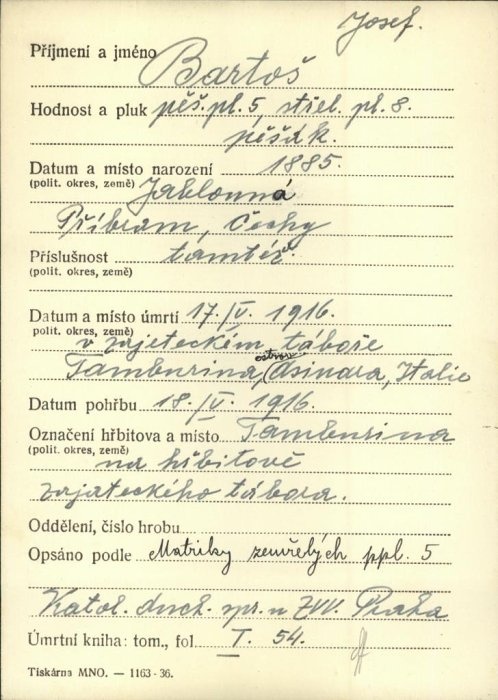 Josef.
Příjmení a jméno Bartoš
Hodnost a pluk pěš. pl. 5, střel. pl. 8.
pěšák.
Datum a místo narození 1885.
(polit. okres, země) Jablonná
Příbram, Čechy
Příslušnost tamtéž.
(polit. okres, země)
Datum a místo úmrtí 17./V. 1916.
polit. okres, země)
v zajateckém táboře
ostrov
Tamburina, Asinara, Italie
Datum pohřbu 18./V. 1916.
Označení hřbitova a místo Tamburina
(polit. okres, země)
na hřbitově
zajateckého tábora.
Oddělení, číslo hrobu
Opsáno podle Matriky zemřelých ppl. 5
Katol. duch. spr. u ZVV. Praha
Úmrtní kniha: tom., fol. I. 54.
Tiskárna MNO. — 1163-36.